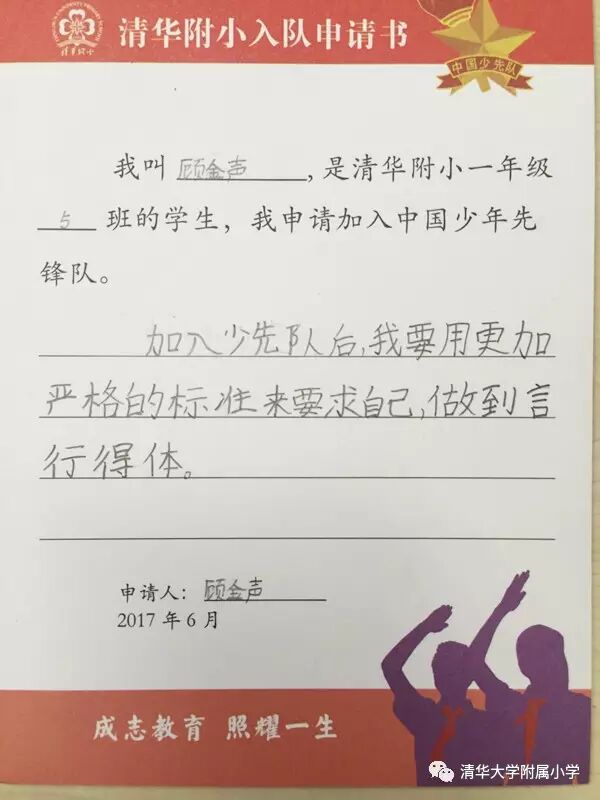 清华附小入队申请书
清华附小
中国少先队
我叫 顾金声 ,是清华附小一年级
5 班的学生，我申请加入中国少年先
锋队。
加入少先队后,我要用更加
严格的标准来要求自己,做到言
行得体。
申请人：顾金声
2017 年 6 月
成志教育 照耀一生
清华大学附属小学